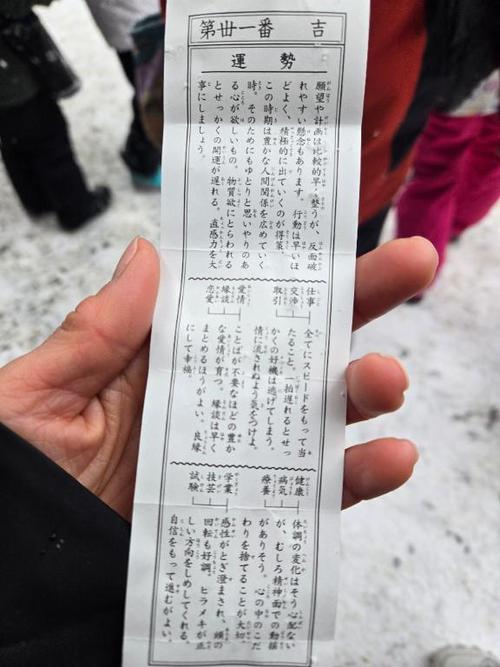 第卅一番 吉
運勢
願望や計画は比較的早く整うが、反面破
れやすい懸念もあります。行動は早いほ
どよく、積極的に出ていくのが得策。
この時期は豊かな人間関係を広めていく
時。そのためにもゆとりと思いやりのあ
る心が欲しいもの。物質欲にとらわれる
とせっかくの開運が遅れる。直感力を大
事にしましょう。
仕事
交渉
取引
全てにスピードをもって当
たること。一拍遅れるとせっ
かくの好機は逃げてしまう。
情に流されぬよう気をつけよ。
愛情
縁談
恋愛
ことばが不要なほどの豊か
な愛情が育つ。縁談は早く
まとめるほうがよい。良縁
にして幸福。
健康
病気
療養
体調の変化はそう心配ない
が、むしろ精神面での動揺
がありそう。心の中のこだ
わりを捨てることが大切。
学業
技芸
試験
感性がとぎ澄まされ、頭の
回転も好調。ヒラメキが正
しい方向をしめしてくれる。
自信をもって進むがよい。